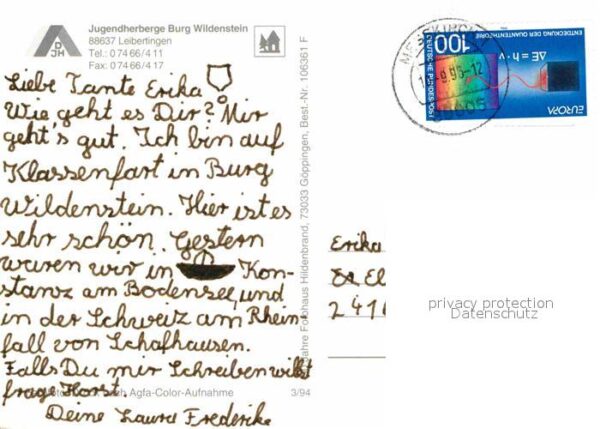 Jugendherberge Burg Wildenstein
88637 Leibertingen
Tel.: 0 74 66/4 11
Fax: 0 74 66/4 17
DJH
Liebe Tante Erika
Wie geht es Dir? Mir
geht's gut. Ich bin auf
Klassenfart in Burg
Wildenstein. Hier ist es
sehr schön. Gestern
waren wir in Kon-
stanz am Bodensee, und
in der Schweiz am Rhein-
fall von Schafhausen.
Falls Du mir Schreiben willst
frage Horst.
Agfa-Color-Aufnahme
3/94
Deine Laura Frederike
Fotohaus Hildenbrand, 73033 Göppingen, Best.-Nr. 106361 F
100
DEUTSCHE BUNDESPOST
ENTDECKUNG DER QUANTENTHEORIE
ΔE = h · ν
EUROPA
Erika
El
2416
privacy protection
Datenschutz